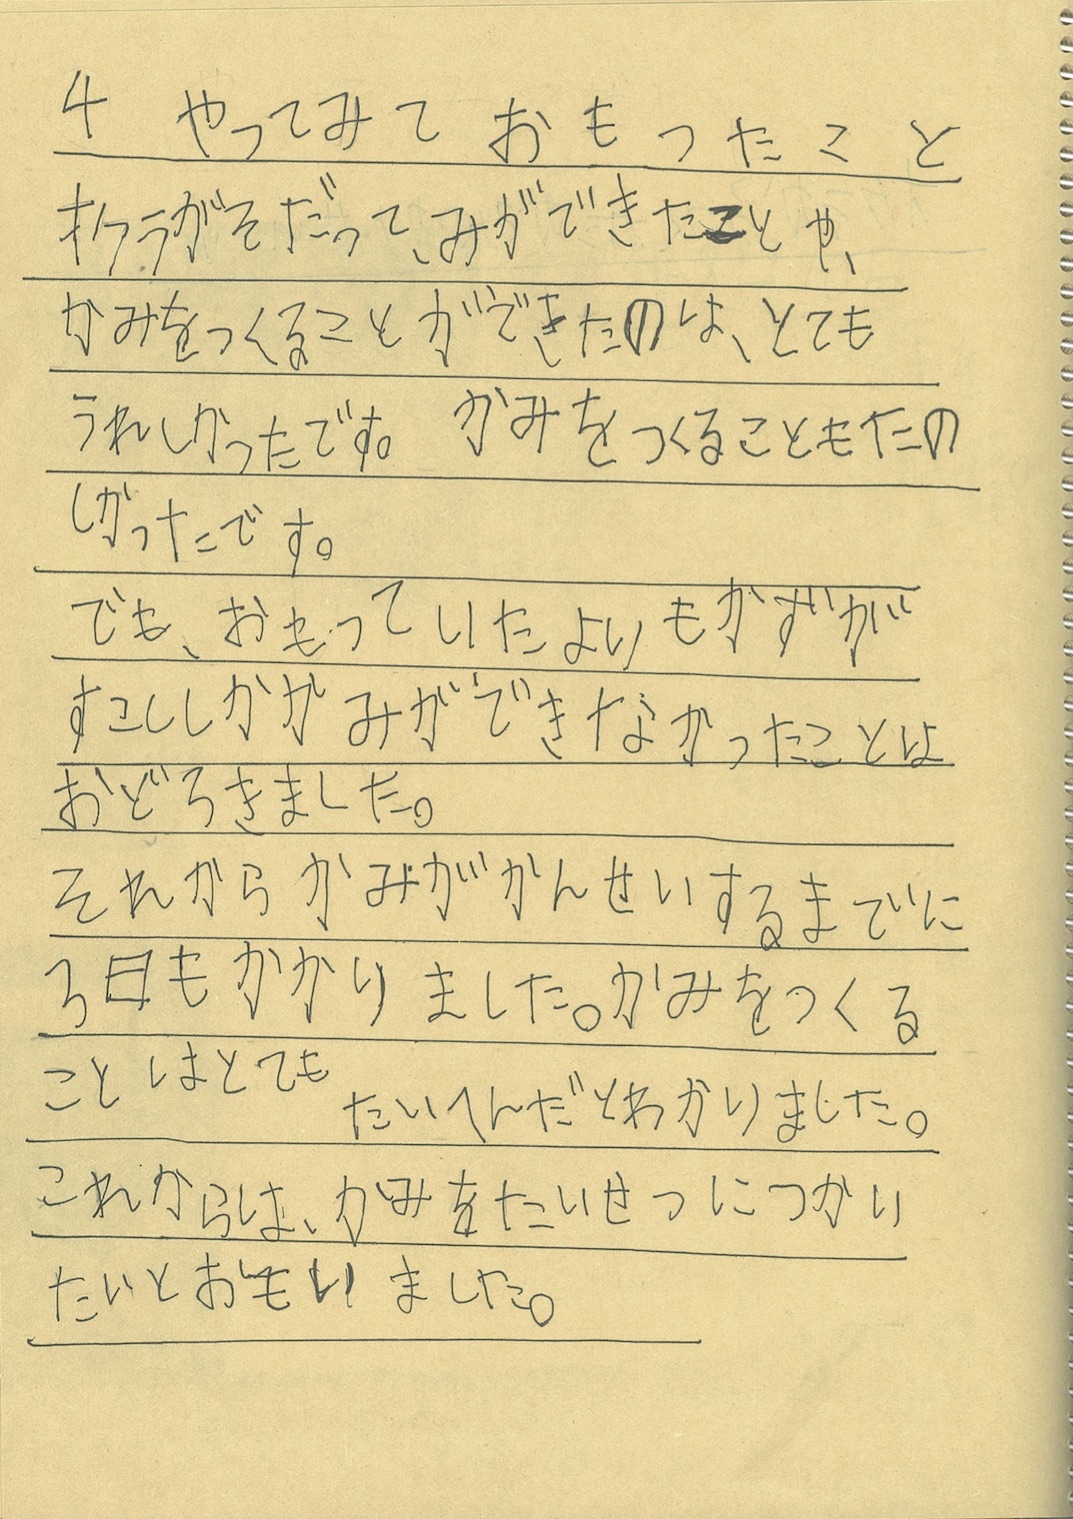 4 やってみておもったこと
オクラがそだって、みができたことや、
かみをつくることができたのは、とても
うれしかったです。かみをつくることもたの
しかったです。
でも、おもっていたよりもかずが
すこししかかみができなかったことは
おどろきました。
それからかみがかんせいするまでに
3日もかかりました。かみをつくる
ことはとてもたいへんだとわかりました。
これからは、かみをたいせつにつかい
たいとおもいました。